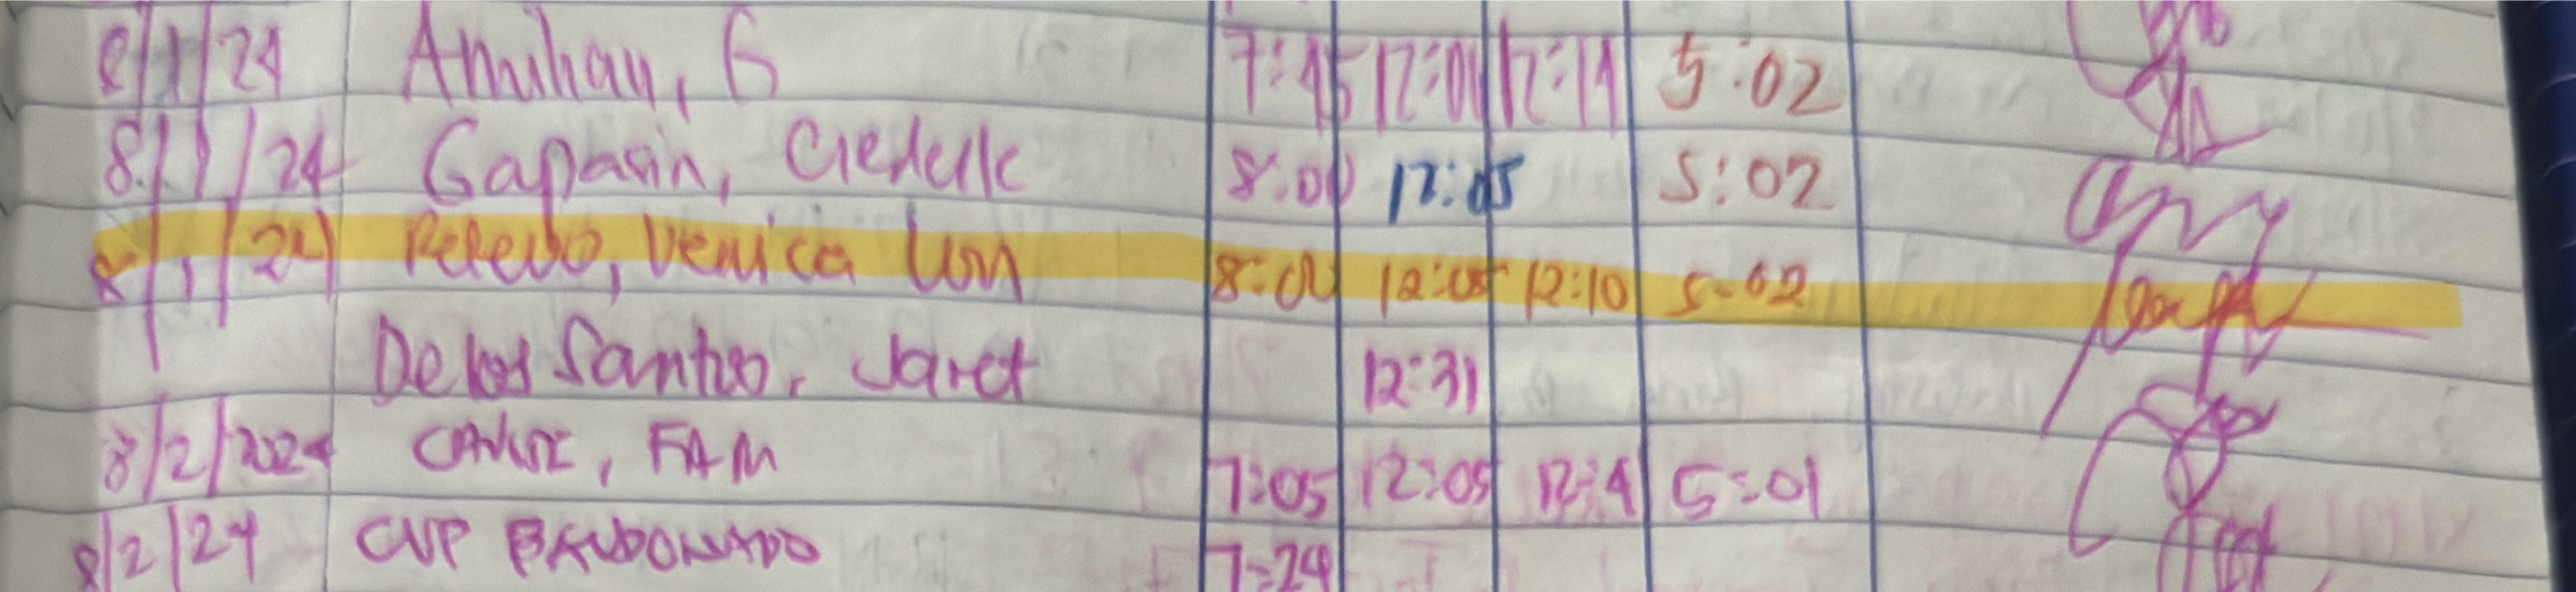 8/1/24 Amihan, G 7:45 12:01 12:14 5:02
8/1/24 Gapasin, 8:00 12:05 5:02
8/1/24 Venica 8:00 12:05 12:10 5-02
De los Santos, Jaret 12:31
8/2/2024 FAM 7:05 12:05 5:01
8/2/24 CVP 7:24